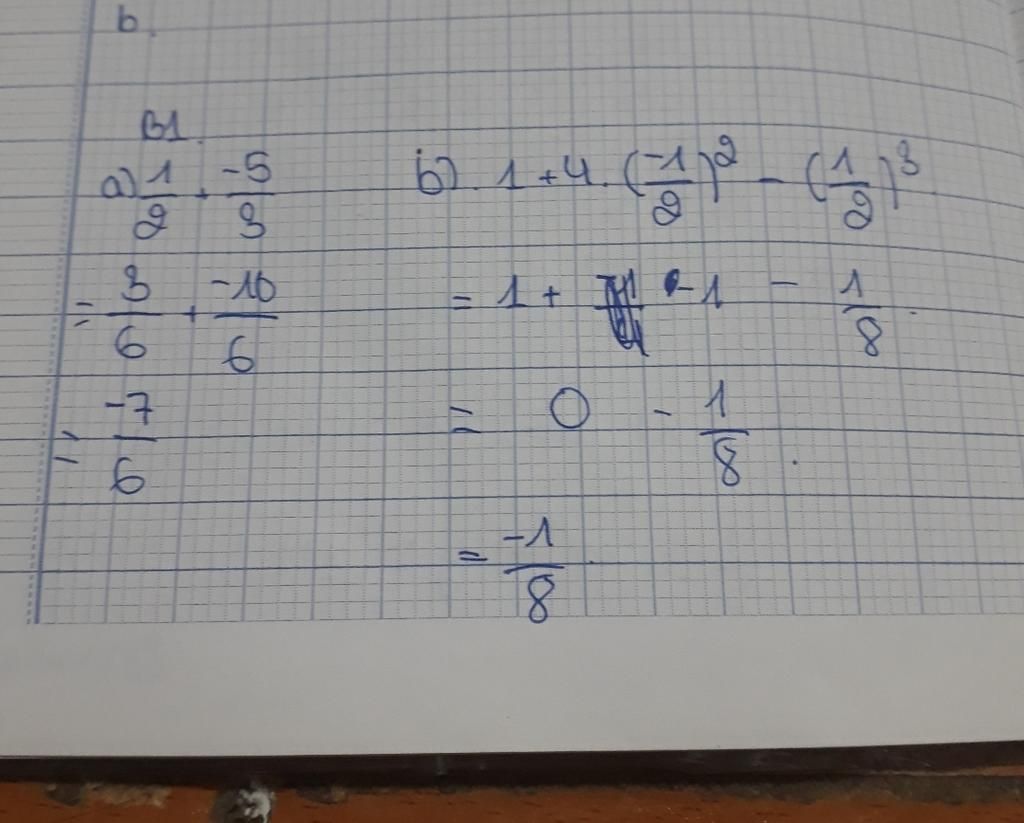 b.
B1.
a) 1/2 + -5/3
= 3/6 + -10/6
= -7/6
b) 1 + 4. (-1/2)^2 - (1/2)^3
= 1 + -1 - 1/8.
= 0 - 1/8.
= -1/8.